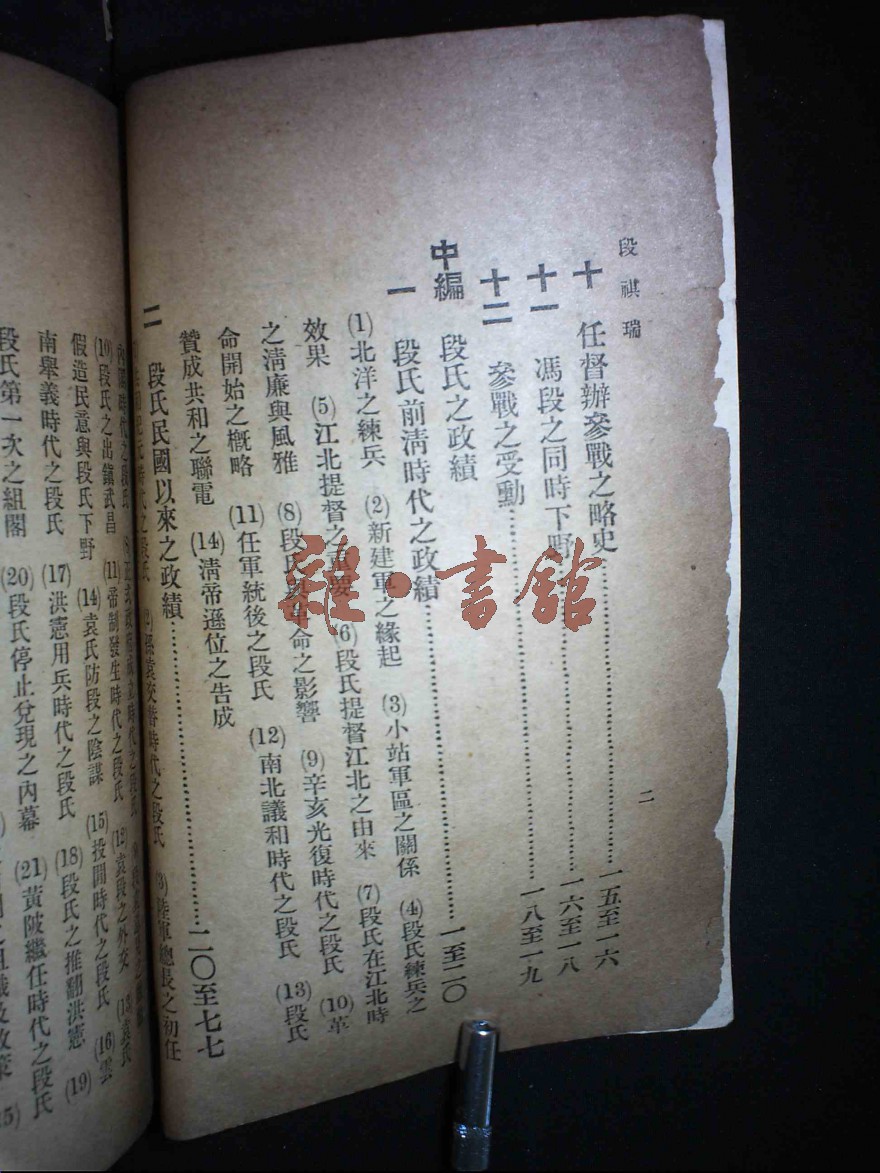 段祺瑞
二
十 任督辦參戰之略史……一五至一六
十一 馮段之同時下野……一六至一八
十二 參戰之受動……一八至一九
中編 段氏之政績
一 段氏前淸時代之政績……一至二〇
(1)北洋之練兵 (2)新建軍之緣起 (3)小站軍區之關係 (4)段氏練兵之
效果 (5)江北提督之重要 (6)段氏提督江北之由來 (7)段在江北時
之淸廉與風雅 (8)段氏與革命之影響 (9)辛亥光復時代之段氏 (10)革
命開始之槪略 (11)任軍統後之段氏 (12)南北議和時代之段氏 (13)段氏
贊成共和之聯電 (14)淸帝遜位之告成
二 段氏民國以來之政績……二〇至七七
時代之段氏 時代之段氏 (3)陸軍總長之初任
內閣時代之段氏
(10)段氏之出鎭武昌 (11)帝制發生時代之段氏 (12)袁段之外交 (13)袁氏
假造民意與段氏下野 (14)袁氏防段之陰謀 (15)投閒時代之段氏 (16)雲
南舉義時代之段氏 (17)洪憲用兵時代之段氏 (18)段氏之推翻洪憲 (19)
段氏第一次之組閣 (20)段氏停止兌現之內幕 (21)黃陂繼任時代之段氏
雜·書館